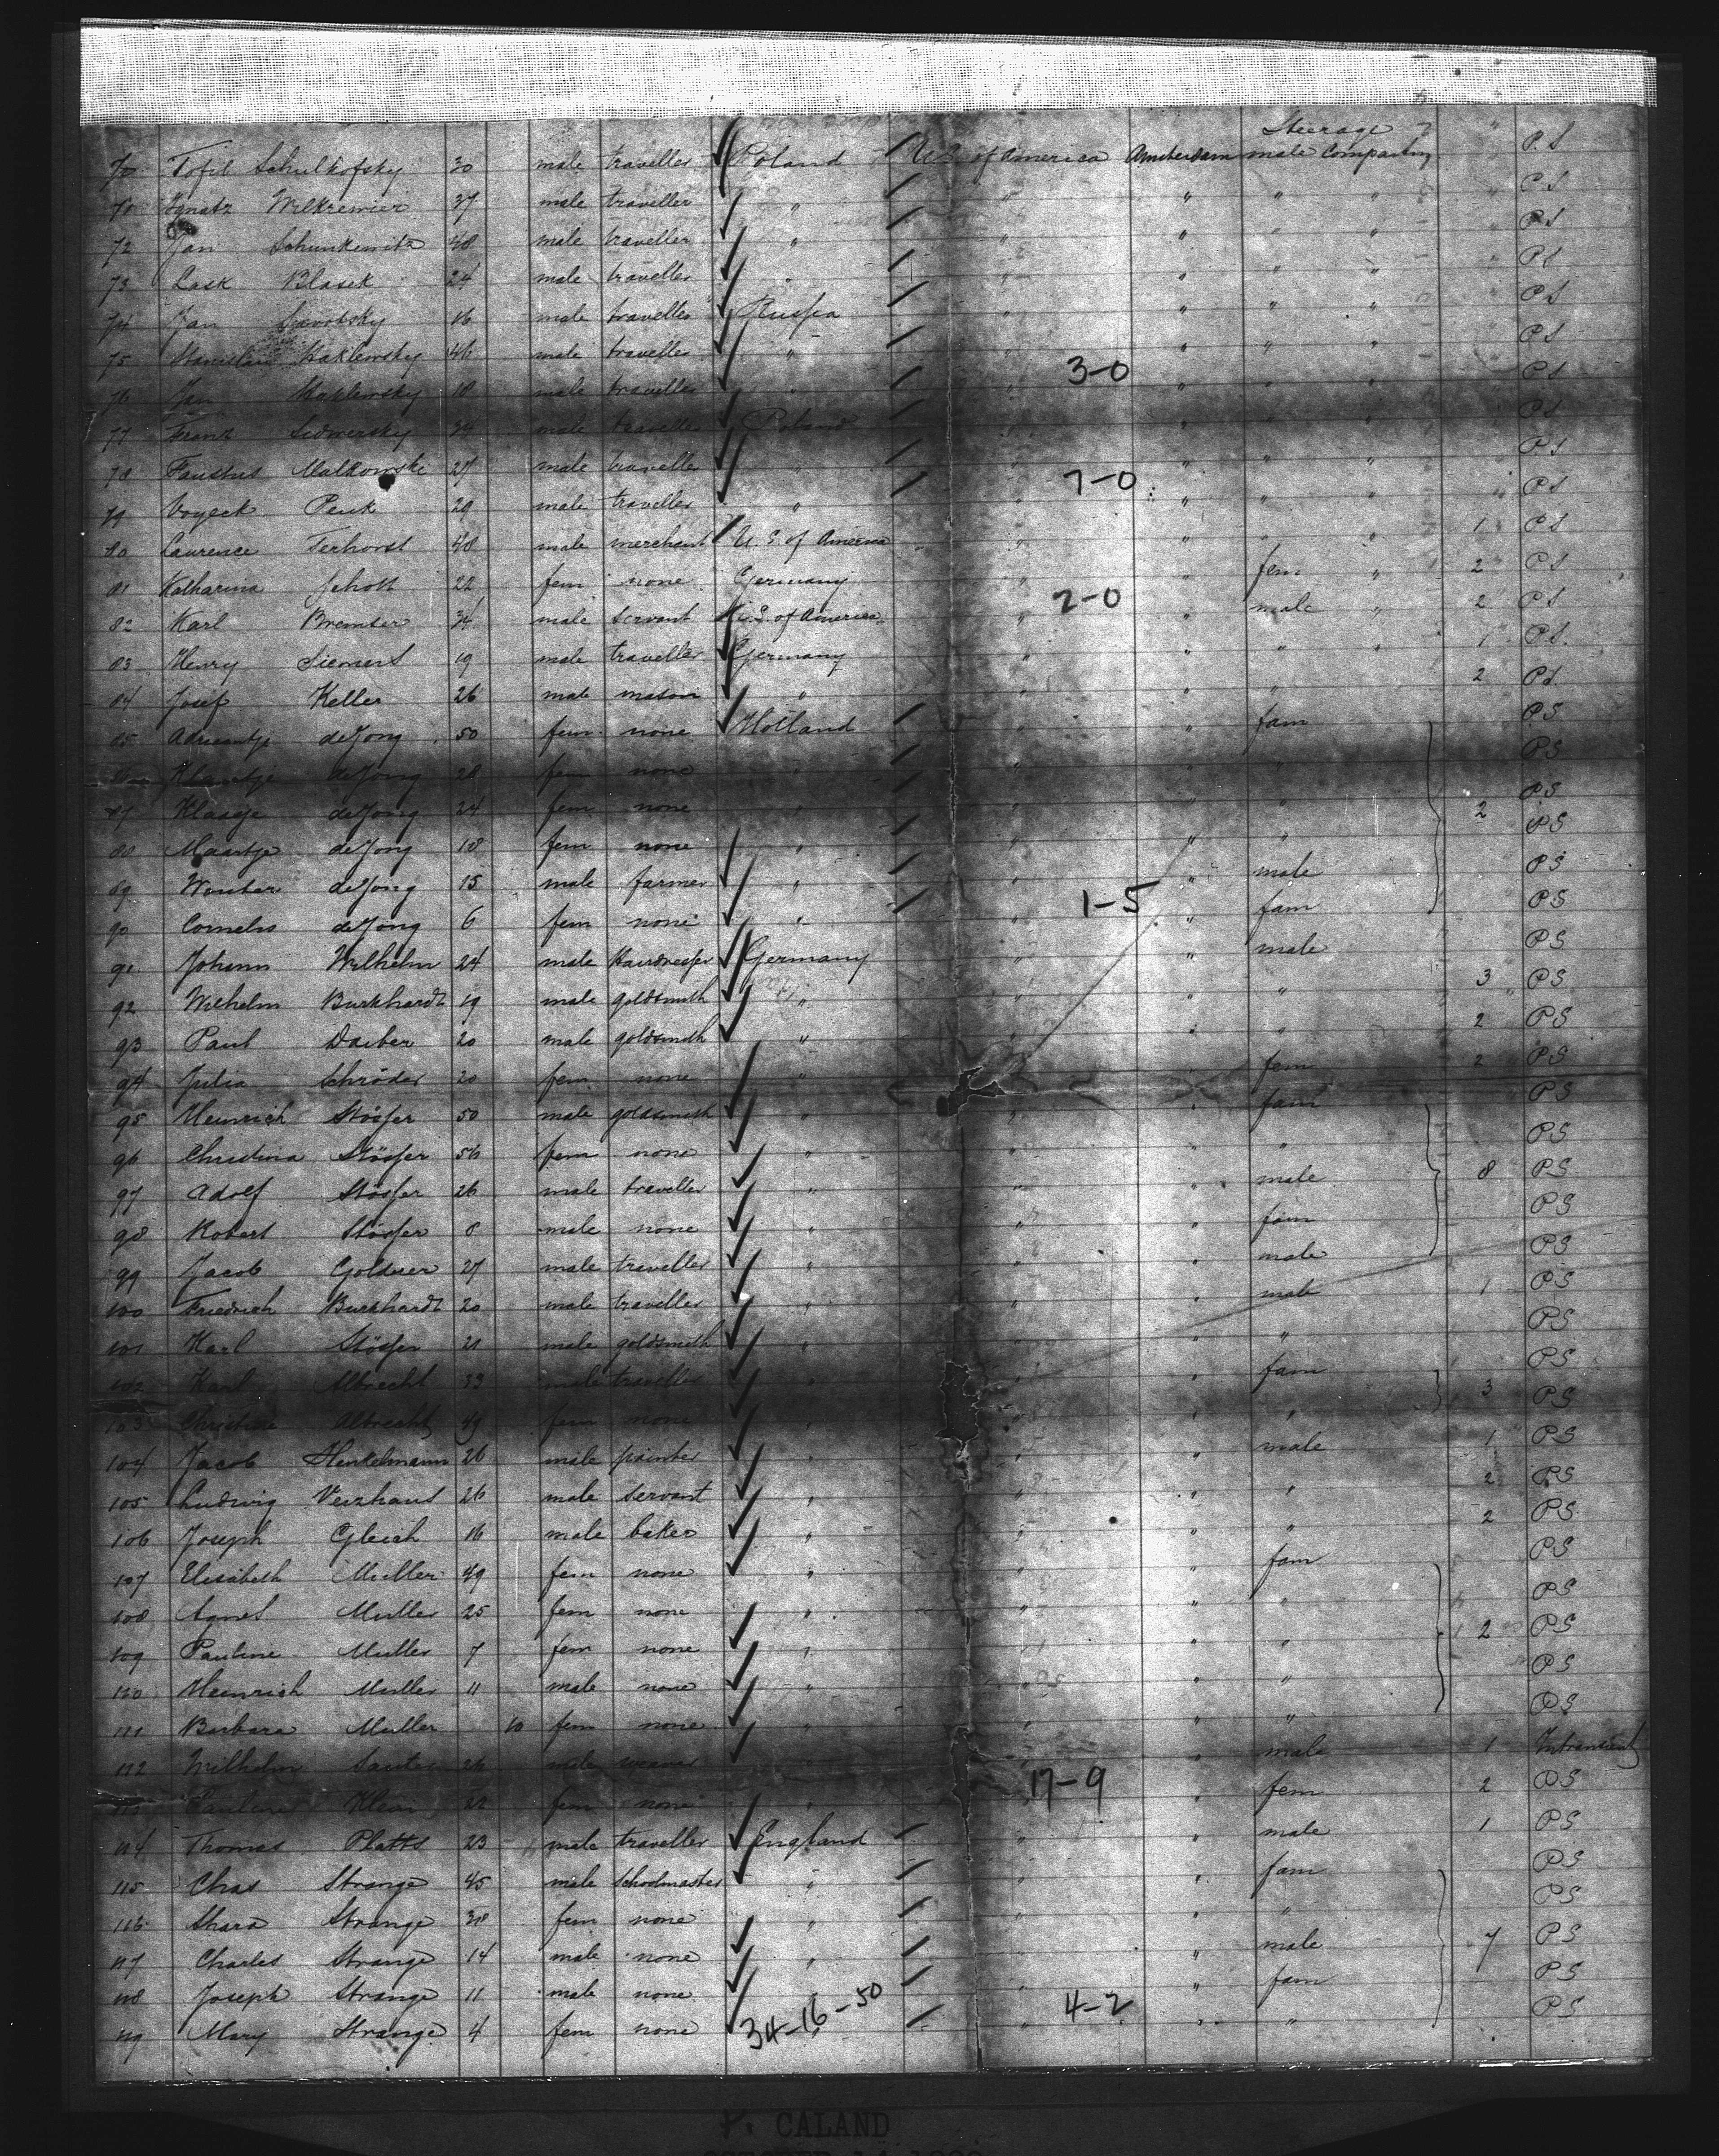 70 Tofil Schulkofsky 30 male traveller Poland U.S. of America Amsterdam Steerage male Compartm " P.S
71 Ignatz 37 male traveller " " " " " " P S
72 Jan Schunkewitz 48 male traveller " " " " " " P S
73 Lask Blasek 24 male traveller " " " " " " P S
74 Jan Savotsky 16 male traveller Russia " " " " " P S
75 Stanislaus Kaklewsky 46 male traveller " " " " " P S
76 Jan Kaklewsky 18 male traveller " " 3-0 " " " P S
77 Franz 34 male traveller Poland " " " " P S
78 Faustus Malkowske 27 male traveller " " " " P S
79 Voyeck Penk 29 male traveller " " 7-0 " " " " P S
80 Laurence Terhorst 48 male merchant U.S. of America " " " " 1 P S
81 Katharina Schott 22 fem none Germany " " fem " 2 P S
82 Karl Bremser 34 male servant U.S. of America " 2-0 " male " 2 P S
83 Henry Siemers 19 male traveller Germany " " " " 1 P S
84 Josef Keller 26 male mason " " " " 2 P S
85 Adriaantje de Jong 50 fem none Holland " " fam P S
86 Klaartje de Jong 28 fem none " " " " P S
87 Klaasje de Jong 24 fem none " " " " 2 P S
88 Maartje de Jong 18 fem none " " " " P S
89 Wouter de Jong 15 male farmer " " " male P S
90 Cornelis de Jong 6 fem none " " 1-5 " fam P S
91 Johann Wilhelm 24 male Hairdresser Germany " " male P S
92 Wilhelm Burkhardt 19 male goldsmith " " " " 3 P S
93 Paul Daiber 20 male goldsmith " " " " 2 P S
94 Julia Schröder 20 fem none " " " fem 2 P S
95 Heinrich Stösser 50 male goldsmith " " " fam P S
96 Christina Stösser 56 fem none " " " " P S
97 Adolf Stösser 26 male traveller " " " male 8 P S
98 Robert Stösser 8 male none " " " fam P S
99 Jacob Goldner 27 male traveller " " " male P S
100 Friedrich Burkhardt 20 male traveller " " " male 1 P S
101 Karl Stösser 21 male goldsmith " " " " P S
102 Karl Albrecht 33 male traveller " " " fam 3 P S
103 Christine Albrecht 49 fem none " " " " P S
104 Jacob Henkelmann 26 male painter " " " male 1 P S
105 Ludwig Verzhaus 26 male servant " " " " 2 P S
106 Joseph Gleich 16 male baker " " " " 2 P S
107 Elisabeth Muller 49 fem none " " " fam P S
108 Agnes Muller 25 fem none " " " " P S
109 Pauline Muller 7 fem none " " " " 2 P S
110 Heinrich Muller 11 male none " " " " P S
111 Barbara Muller 10 fem none " " " " P S
112 Wilhelm Sauter 26 male weaver " " " male 1 Intransient
113 Pauline Klein 22 fem none " 17-9 " fem 2 P S
114 Thomas Platts 23 male traveller England " " male 1 P S
115 Chas Strange 45 male Schoolmaster " " " fam P S
116 Shara Strange 38 fem none " " " " P S
117 Charles Strange 14 male none " " " male 7 P S
118 Joseph Strange 11 male none " " " fam P S
119 Mary Strange 4 fem none 34-16-50 " 4-2 " " P S
P. CALAND